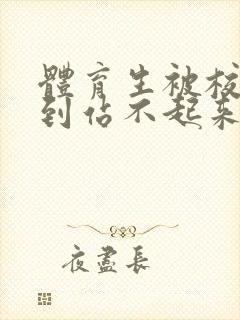 體育生被校
到佔不起來
夜盡長